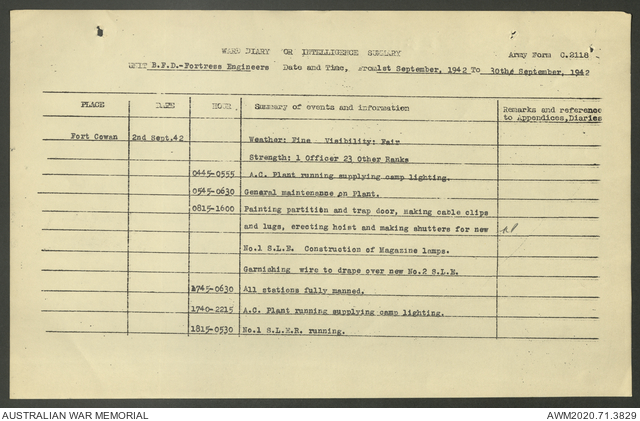 WAR DIARY OR INTELLIGENCE SUMMARY
Army Form C.2118
UNIT B.F.D.-Fortress Engineers Date and Time, From 1st September, 1942 To 30th September, 1942
PLACE DATE HOUR Summary of events and information Remarks and reference to Appendices, Diaries
Fort Cowan 2nd Sept.42 Weather: Fine Visibility: Fair
Strength: 1 Officer 23 Other Ranks
0445-0555 A.C. Plant running supplying camp lighting.
0545-0630 General maintenance on Plant.
0815-1600 Painting partition and trap door, making cable clips
and lugs, erecting hoist and making shutters for new
No.1 S.L.E. Construction of Magazine lamps.
Garnishing wire to drape over new No.2 S.L.E.
1745-0630 All stations fully manned.
1740-2215 A.C. Plant running supplying camp lighting.
1815-0530 No.1 S.L.E.R. running.
AUSTRALIAN WAR MEMORIAL
AWM2020.71.3829